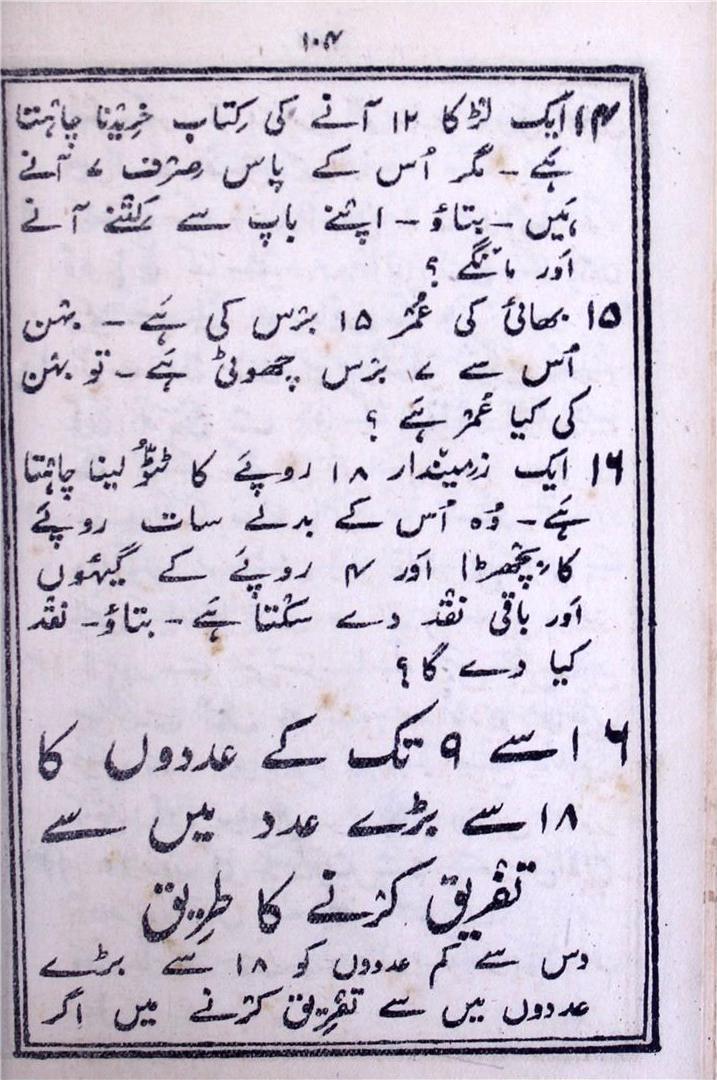 ۱۰۴
۱۴ ایک لڑکا ۱۲ آنے کی کِتاب خرِیدنا چاہتا
ہَے ۔ مگر اُس کے پاس صِرْف ۷ آنے
ہَیں ۔ بتاؤ ۔ اپنے باپ سے کِتْنے آنے
اَور مانگے ؟
۱۵ بھائی کی عُمْر ۱۵ بَرَس کی ہَے ۔ بہن
اُس سے ۷ بَرَس چھوٹی ہَے ۔ تو بہن
کی کیا عُمْر ہَے ؟
۱۶ ایک زمِیندار ۱۸ روپَے کا ٹٹُّو لینا چاہتا
ہَے ۔ وُہ اُس کے بدلے سات روپَے
کا بچھڑا اَور ۴ روپَے کے گیہُوں
اَور باقی نقْد دے سکْتا ہَے ۔ بتاؤ ۔ نقْد
کیا دے گا ؟
۶ ۱ سے ۹ تک کے عددوں کا
۱۸ سے بڑے عدد میں سے
تفْرِیق کرْنے کا طرِیق
دس سے کم عددوں کو ۱۸ سے بڑے
عددوں میں سے تفْرِیق کرْنے میں اگر